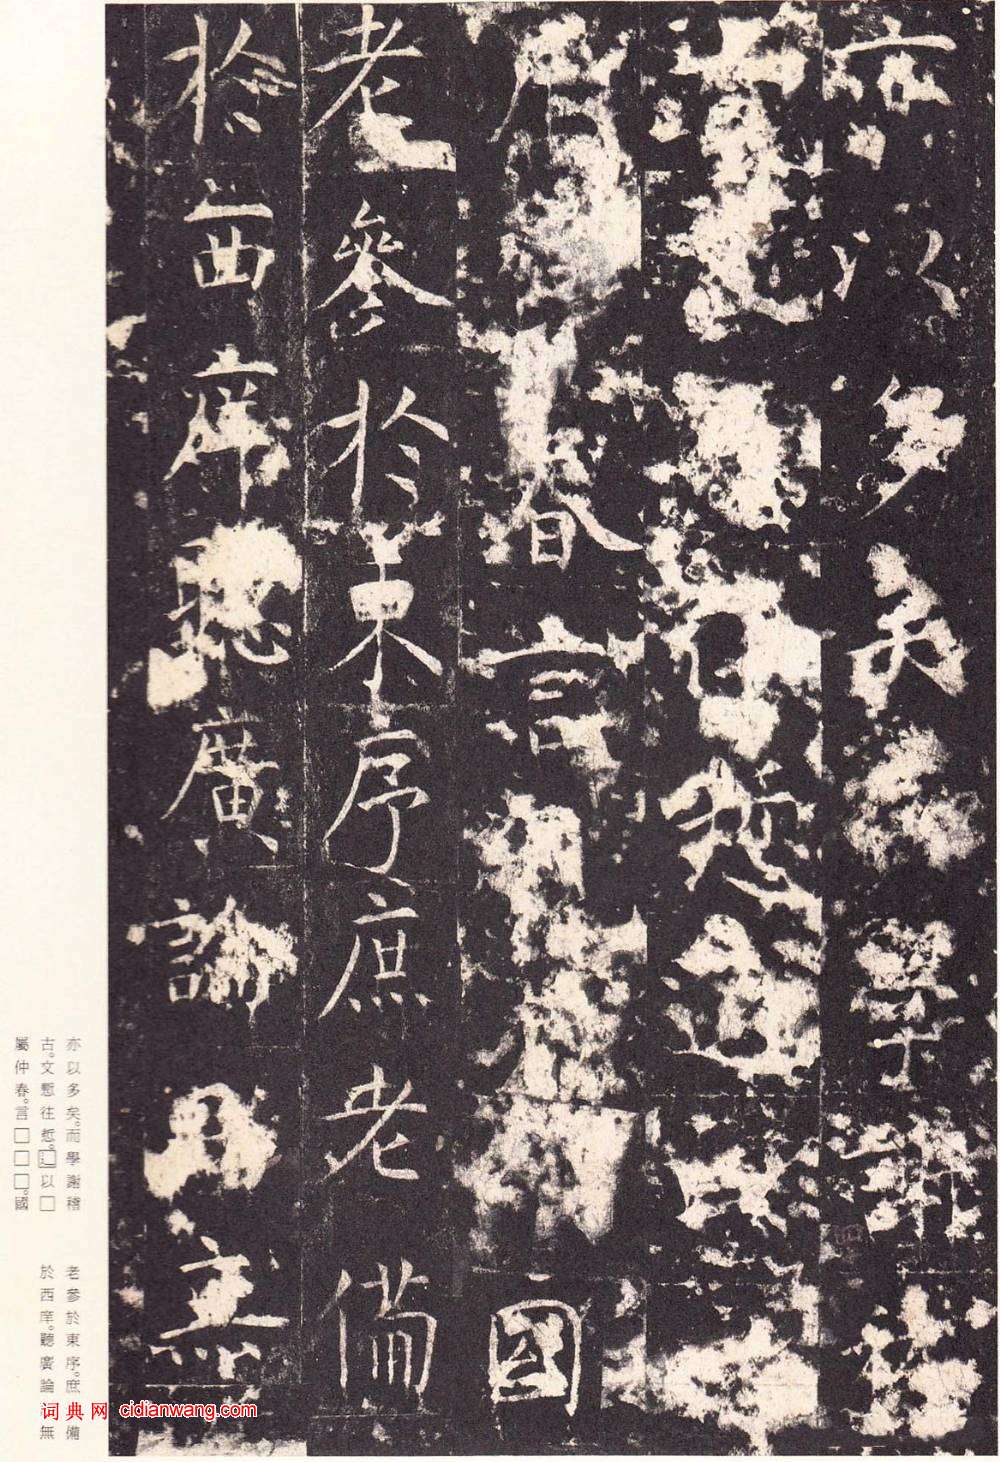 亦以多矣而學謝稽
古文慙往哲以
屬仲春言國
老參於東序庶老備
於西庠聽廣論無
亦以多矣。而學謝稽
古。文慙往哲。□以□
屬仲春。言□□□。國
老參於東序。庶備
於西庠。聽廣論無
词典网 cidianwang.com